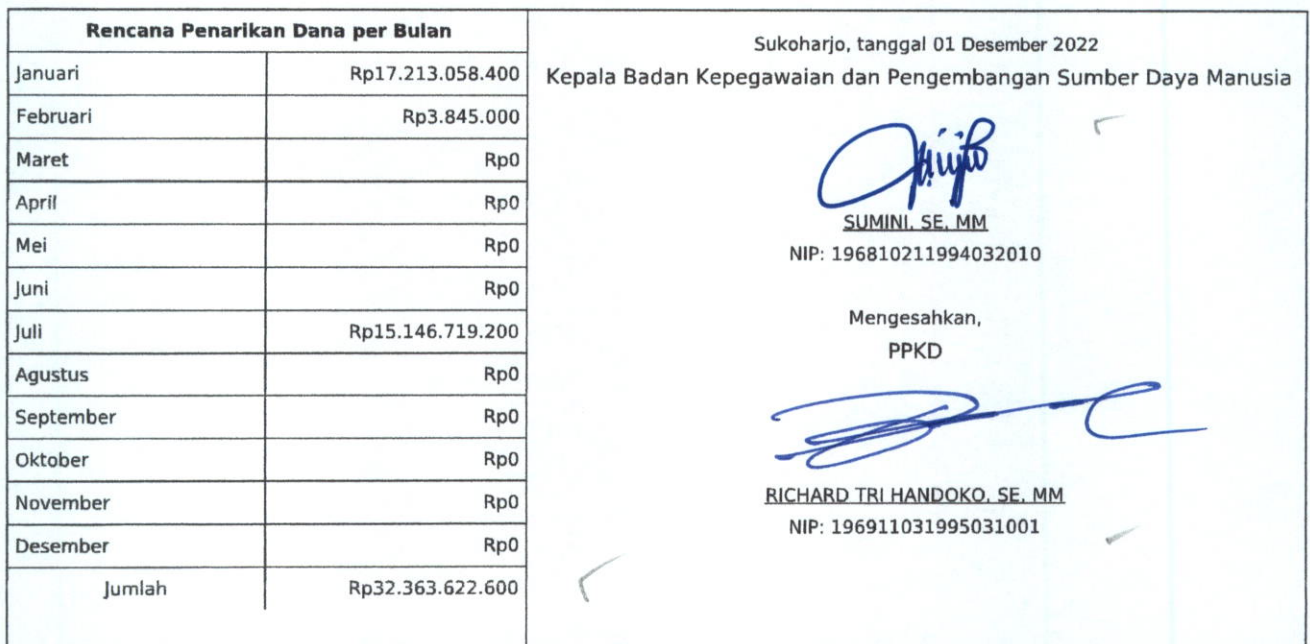 Rencana Penarikan Dana per Bulan
Januari Rp17.213.058.400
Februari Rp3.845.000
Maret Rp0
April Rp0
Mei Rp0
Juni Rp0
Juli Rp15.146.719.200
Agustus Rp0
September Rp0
Oktober Rp0
November Rp0
Desember Rp0
Jumlah Rp32.363.622.600
Sukoharjo, tanggal 01 Desember 2022
Kepala Badan Kepegawaian dan Pengembangan Sumber Daya Manusia
SUMINI, SE, MM
NIP: 196810211994032010
Mengesahkan,
PPKD
RICHARD TRI HANDOKO, SE, MM
NIP: 196911031995031001